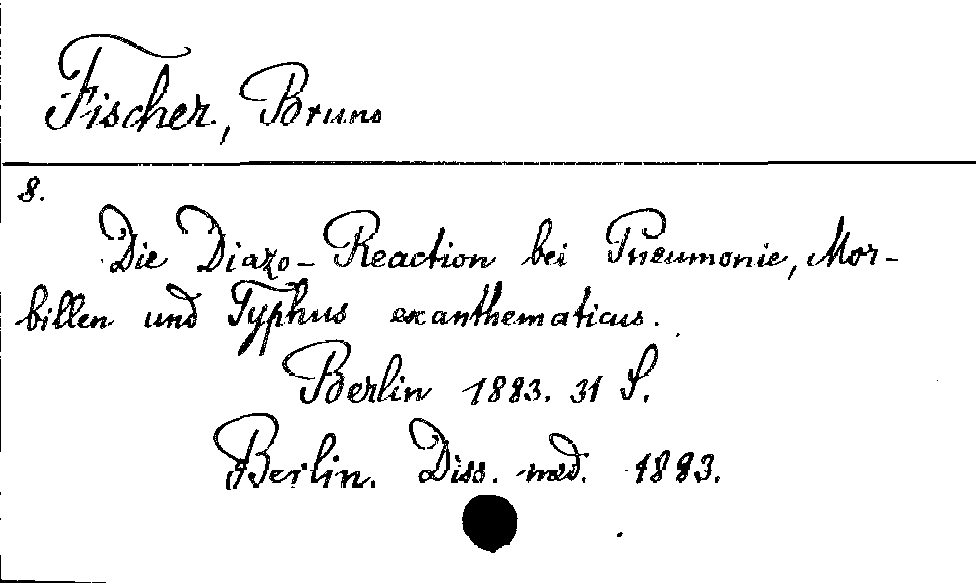 Fischer, Bruno
8.
Die Diazo-Reaction bei Pneumonie, Mor-
billen und Typhus exanthematicus.
Berlin 1883. 31 S.
Berlin. Diss. med. 1883.